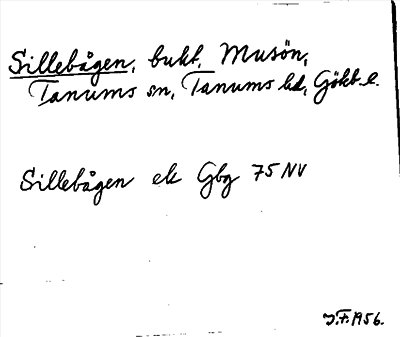 Sillebågen, bukt, Musön,
Tanums sn, Tanums hd, Gökb. l.
Sillebågen ek Gbg 75 NV
J.F. 1956.